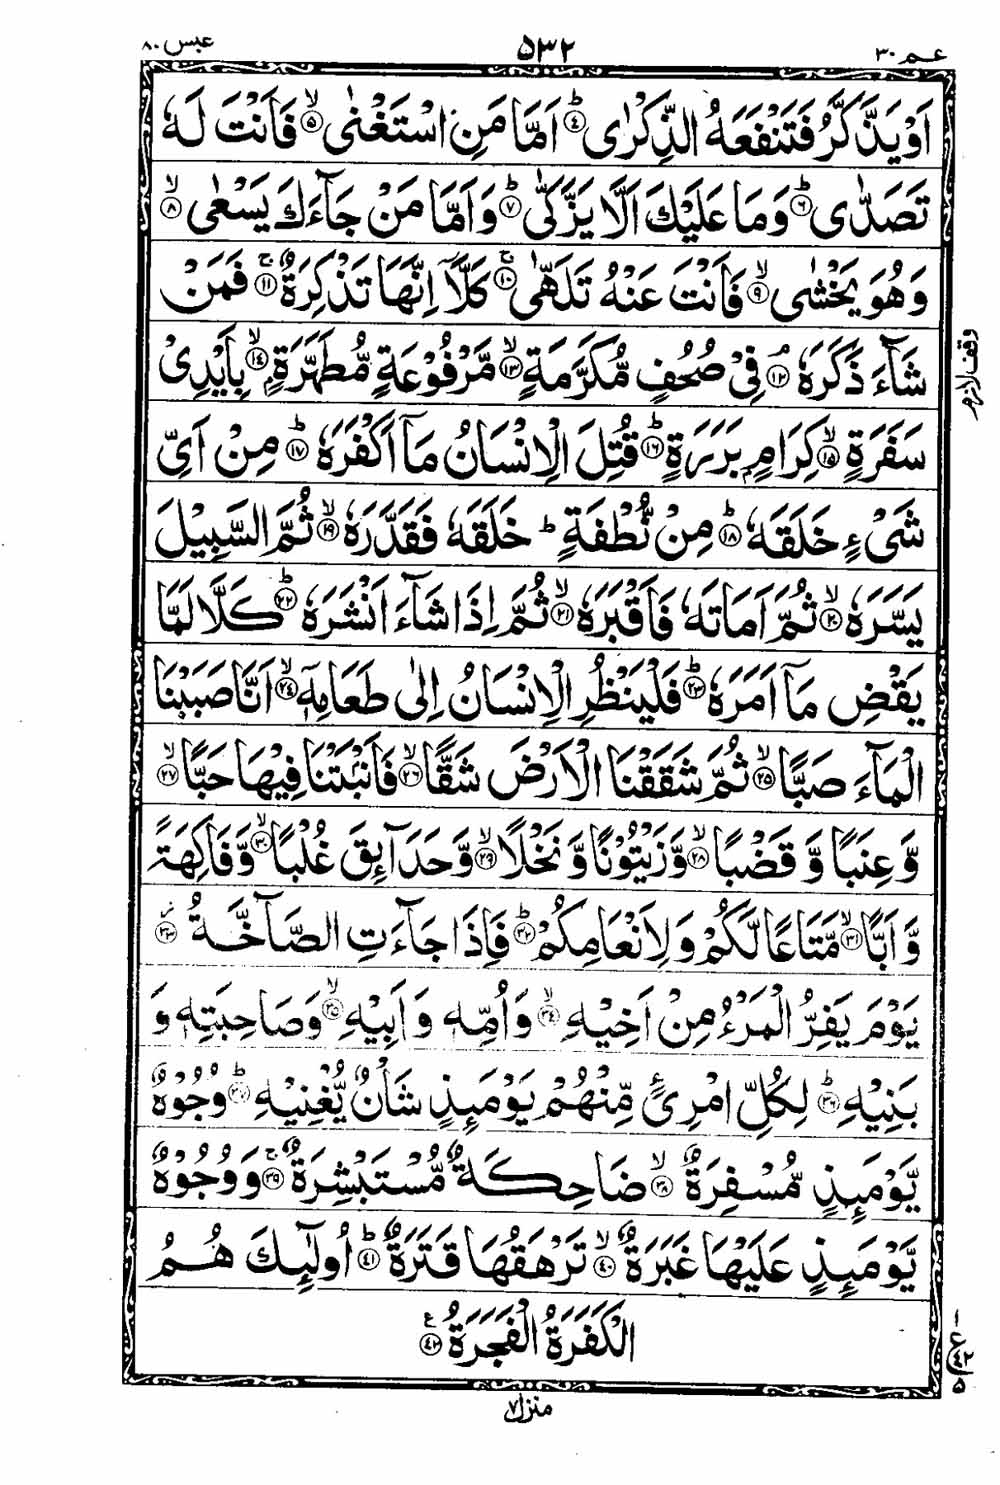 عـم ٣٠ ٥٣٢ عبس ٨٠
اَوْ يَذَّكَّرُ فَتَنْفَعَهُ الذِّكْرٰى ؕ‏﴿۴﴾ اَمَّا مَنِ اسْتَغْنٰى ۙ‏﴿۵﴾ فَاَنْتَ لَهٗ
تَصَدّٰى ؕ‏﴿۶﴾ وَمَا عَلَيْكَ اَلَّا يَزَّكّٰى ؕ‏﴿۷﴾ وَاَمَّا مَنْ جَآءَكَ يَسْعٰى ۙ‏﴿۸﴾
وَهُوَ يَخْشٰى ۙ‏﴿۹﴾ فَاَنْتَ عَنْهُ تَلَهّٰى ۚ‏﴿۱۰﴾ كَلَّاۤ اِنَّهَا تَذْكِرَةٌ ۚ‏﴿۱۱﴾ فَمَنْ
شَآءَ ذَكَرَهٗ ۘ‏﴿۱۲﴾ فِىْ صُحُفٍ مُّكَرَّمَةٍ ۙ‏﴿۱۳﴾ مَّرْفُوْعَةٍ مُّطَهَّرَةٍۭ ۙ‏﴿۱۴﴾ بِاَيْدِىْ
وقف لازم
سَفَرَةٍ ۙ‏﴿۱۵﴾ كِرَامٍۭ بَرَرَةٍ ؕ‏﴿۱۶﴾ قُتِلَ الْاِنْسَانُ مَاۤ اَكْفَرَهٗ ؕ‏﴿۱۷﴾ مِنْ اَىِّ
شَىْءٍ خَلَقَهٗ ؕ‏﴿۱۸﴾ مِنْ نُّطْفَةٍ ؕ خَلَقَهٗ فَقَدَّرَهٗ ۙ‏﴿۱۹﴾ ثُمَّ السَّبِيْلَ
يَسَّرَهٗ ۙ‏﴿۲۰﴾ ثُمَّ اَمَاتَهٗ فَاَقْبَرَهٗ ۙ‏﴿۲۱﴾ ثُمَّ اِذَا شَآءَ اَنْشَرَهٗ ؕ‏﴿۲۲﴾ كَلَّا لَمَّا
يَقْضِ مَاۤ اَمَرَهٗ ؕ‏﴿۲۳﴾ فَلْيَنْظُرِ الْاِنْسَانُ اِلٰى طَعَامِهٖۤ ۙ‏﴿۲۴﴾ اَنَّا صَبَبْنَا
الْمَآءَ صَبًّا ۙ‏﴿۲۵﴾ ثُمَّ شَقَقْنَا الْاَرْضَ شَقًّا ۙ‏﴿۲۶﴾ فَاَنْۢبَتْنَا فِيْهَا حَبًّا ۙ‏﴿۲۷﴾
وَّ عِنَبًا وَّ قَضْبًا ۙ‏﴿۲۸﴾ وَّزَيْتُوْنًا وَّ نَخْلًا ۙ‏﴿۲۹﴾ وَّحَدَآئِقَ غُلْبًا ۙ‏﴿۳۰﴾ وَّفَاكِهَةً
وَّ اَبًّا ۙ‏﴿۳۱﴾ مَّتَاعًا لَّكُمْ وَلِاَنْعَامِكُمْ ؕ‏﴿۳۲﴾ فَاِذَا جَآءَتِ الصَّآخَّةُ ۫‏﴿۳۳﴾
يَوْمَ يَفِرُّ الْمَرْءُ مِنْ اَخِيْهِ ۙ‏﴿۳۴﴾ وَاُمِّهٖ وَاَبِيْهِ ۙ‏﴿۳۵﴾ وَصَاحِبَتِهٖ وَ
بَنِيْهِ ؕ‏﴿۳۶﴾ لِكُلِّ امْرِىٴٍ مِّنْهُمْ يَوْمَئِذٍ شَاْنٌ يُّغْنِيْهِ ؕ‏﴿۳۷﴾ وُجُوْهٌ
يَّوْمَئِذٍ مُّسْفِرَةٌ ۙ‏﴿۳۸﴾ ضَاحِكَةٌ مُّسْتَبْشِرَةٌ ۚ‏﴿۳۹﴾ وَوُجُوْهٌ
يَّوْمَئِذٍ عَلَيْهَا غَبَرَةٌ ۙ‏﴿۴۰﴾ تَرْهَقُهَا قَتَرَةٌ ؕ‏﴿۴۱﴾ اُولٰٓئِكَ هُمُ
الْكَفَرَةُ الْفَجَرَةُ ۠‏﴿۴۲﴾
١
ع
٤٢
٥
منزل ٧